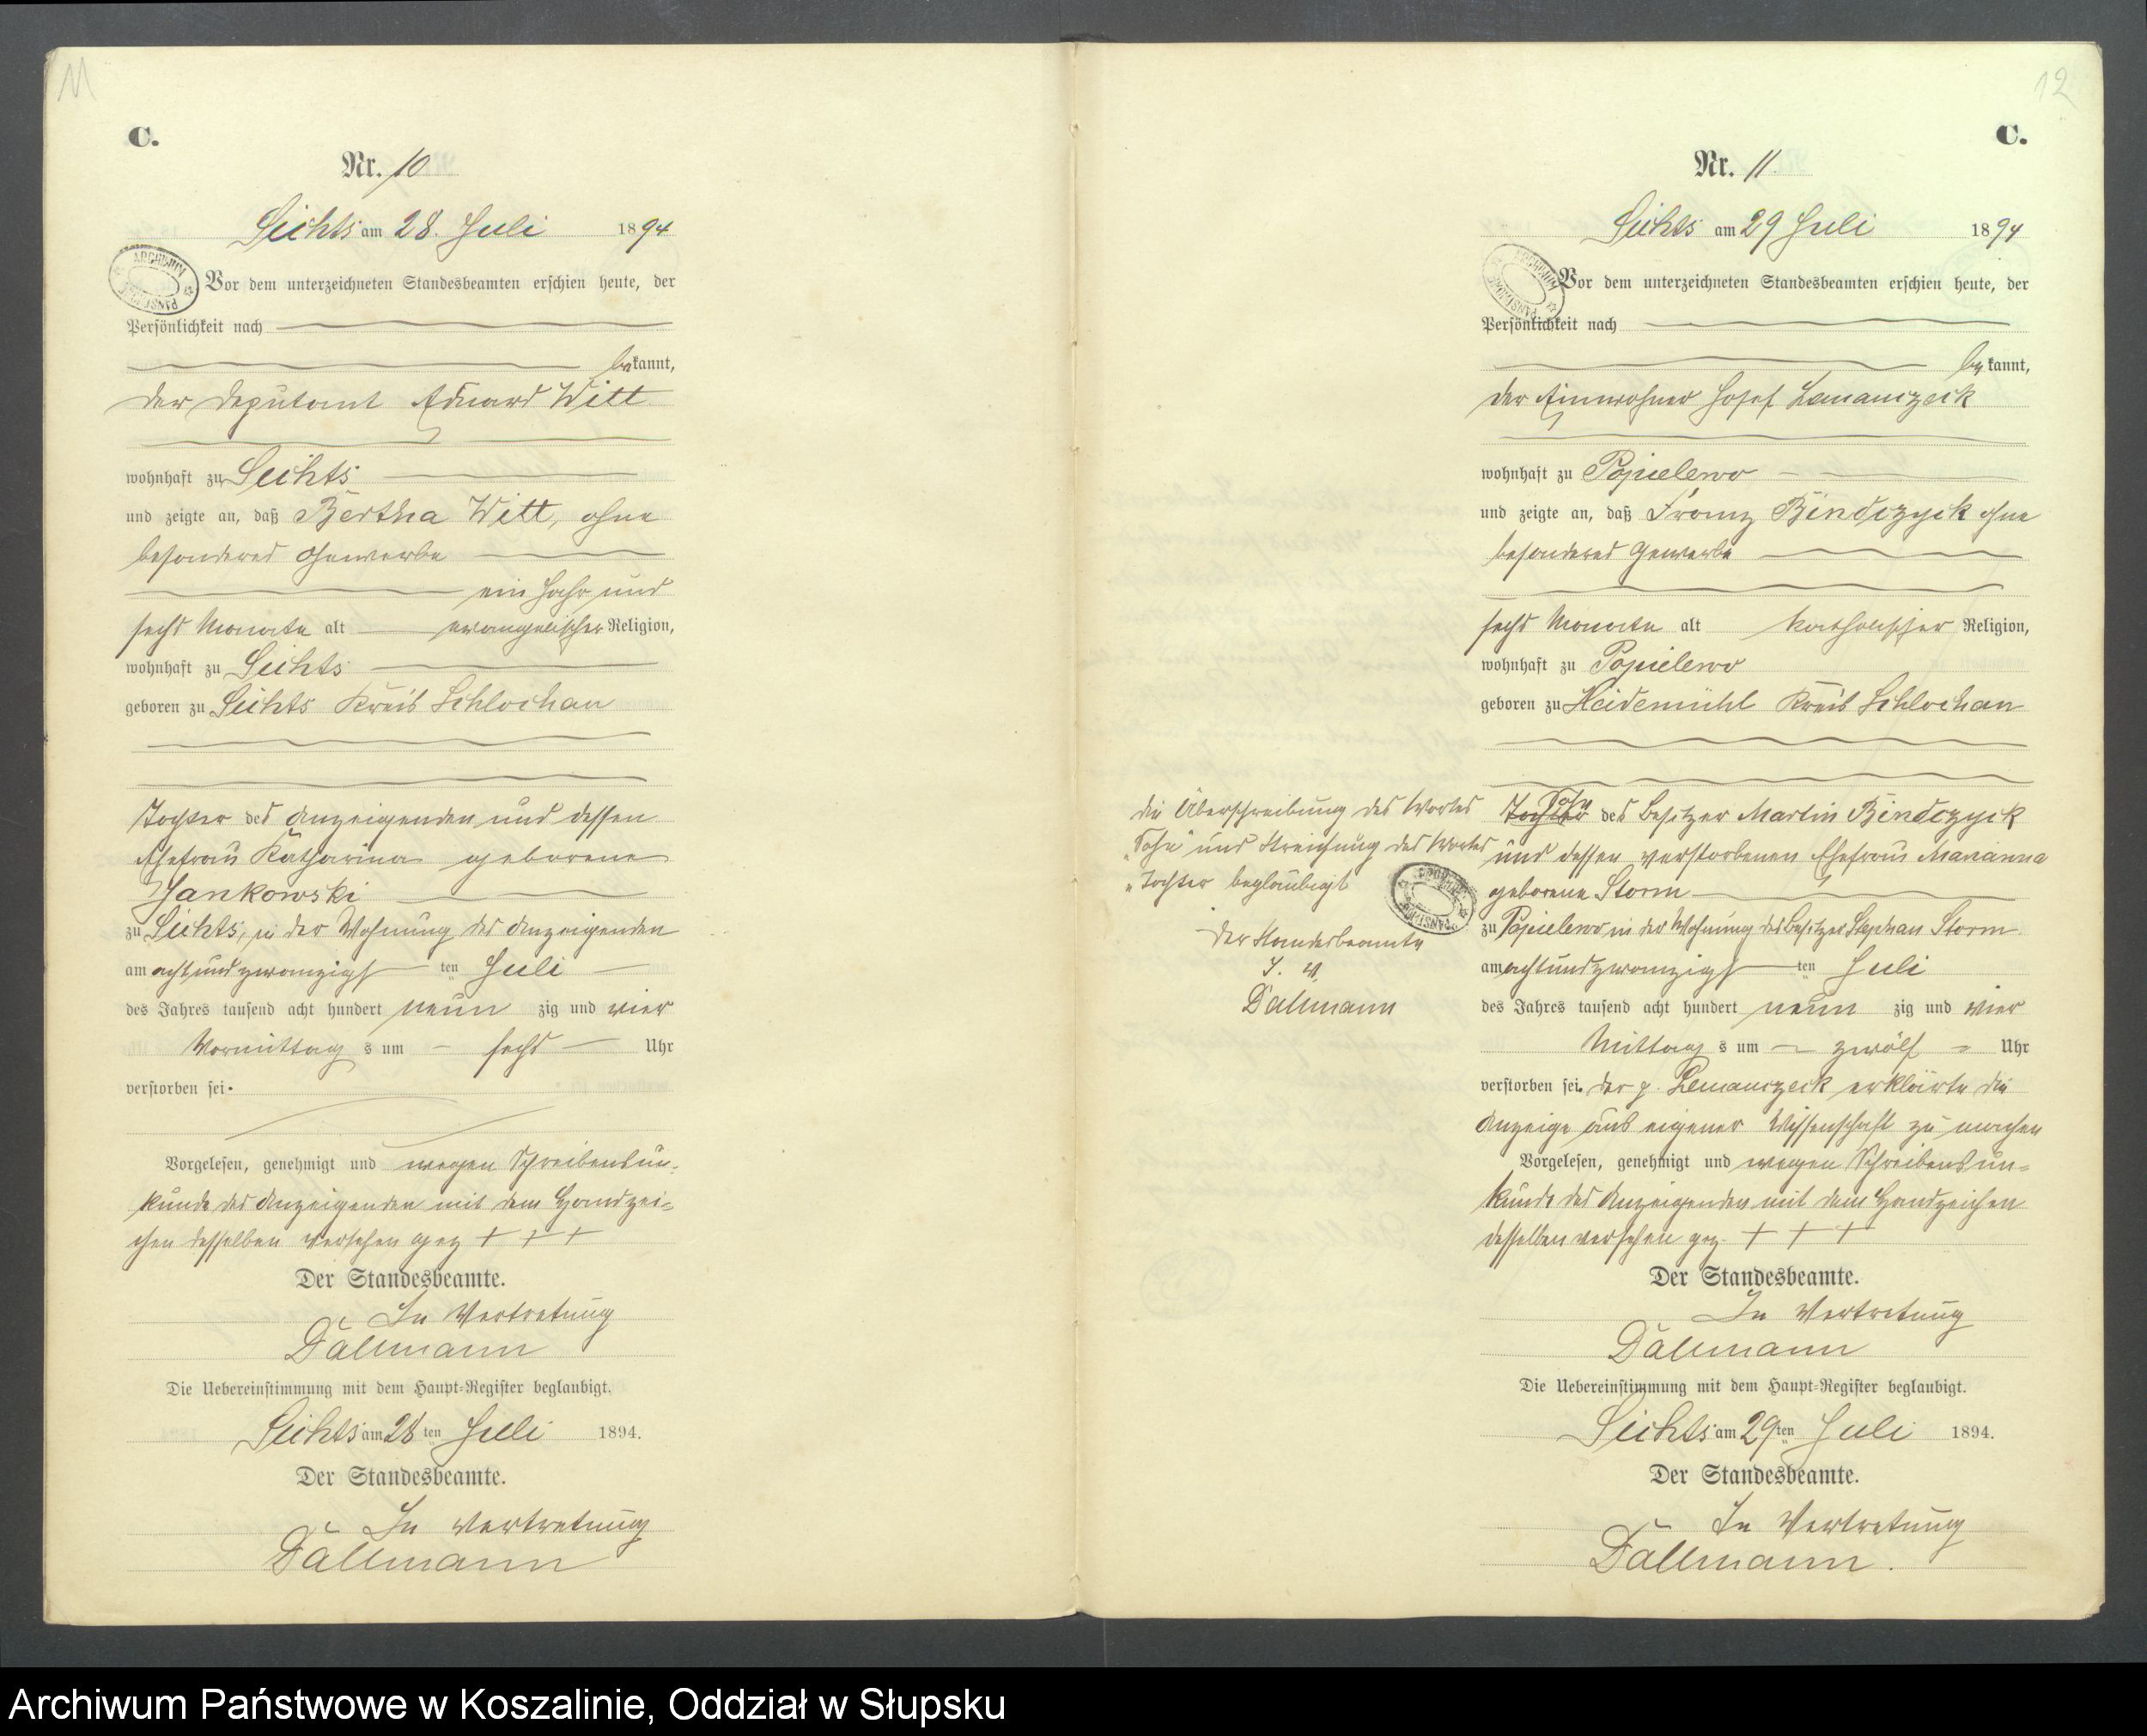 11
C.
Nr. 10
Lichts am 28. Juli 1894
Vor dem unterzeichneten Standesbeamten erschien heute, der
Persönlichkeit nach
bekannt,
der Deputant Eduard Witt
wohnhaft zu Lichts
und zeigte an, daß Bertha Witt, ohne
besonderes Gewerbe
ein Jahr und
sechs Monate alt evangelischer Religion,
wohnhaft zu Lichts
geboren zu Lichts Kreis Schlochau
Tochter des Anzeigenden und dessen
Ehefrau Katharina geborene
Jankowski
zu Lichts, in der Wohnung des Anzeigenden
am achtundzwanzigsten Juli
des Jahres tausend acht hundert neunzig und vier
Vormittags um sechs Uhr
verstorben sei.
Vorgelesen, genehmigt und wegen Schreibensun-
kunde des Anzeigenden mit dem Handzei-
chen desselben versehen gez + + +
Der Standesbeamte.
In Vertretung
Dallmann
Die Uebereinstimmung mit dem Haupt-Register beglaubigt.
Lichts am 28ten Juli 1894.
Der Standesbeamte.
In Vertretung
Dallmann
12
C.
Nr. 11.
Lichts am 29 Juli 1894
Vor dem unterzeichneten Standesbeamten erschien heute, der
Persönlichkeit nach
bekannt,
der Einwohner Josef Lemanczeck
wohnhaft zu Popielewo
und zeigte an, daß Franz Bindczyck ohne
besonderes Gewerbe
sechs Monate alt katholischer Religion,
wohnhaft zu Popielewo
geboren zu Heidemühl Kreis Schlochau
Sohn
Tochter des Besitzer Martin Bindczyck
und dessen verstorbenen Ehefrau Marianna
geborene Storm
zu Popielewo in der Wohnung des Besitzer Stephan Storm
am achtundzwanzigsten Juli
des Jahres tausend acht hundert neunzig und vier
Mittags um zwölf Uhr
verstorben sei. der p. Lemanczeck erklärte die
Anzeige aus eigener Wissenschaft zu machen
Vorgelesen, genehmigt und wegen Schreibensun-
kunde des Anzeigenden mit dem Handzeichen
desselben versehen gez. + + +
Der Standesbeamte.
In Vertretung
Dallmann
Die Uebereinstimmung mit dem Haupt-Register beglaubigt.
Lichts am 29ten Juli 1894.
Der Standesbeamte.
In Vertretung
Dallmann.
die Überschreibung des Wortes
"Sohn" und Streichung des Wortes
"Tochter beglaubigt
Der Standesbeamte
I. V.
Dallmann
Archiwum Państwowe w Koszalinie, Oddział w Słupsku